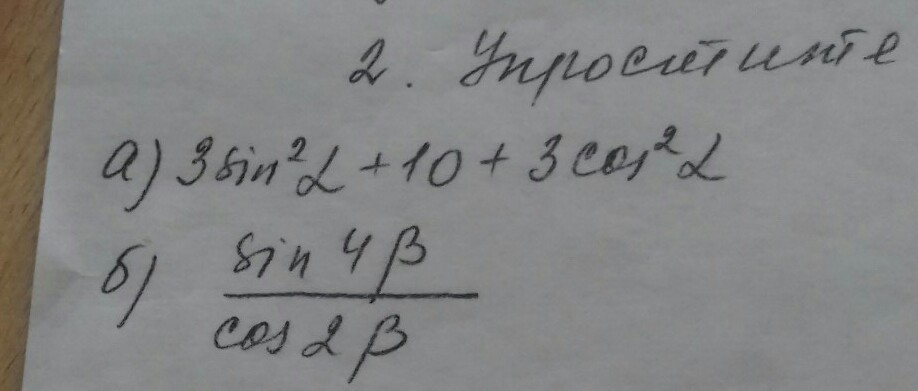 2. Упростите
а) 3 sin²α + 10 + 3 cos²α
б) sin 4β
cos 2β